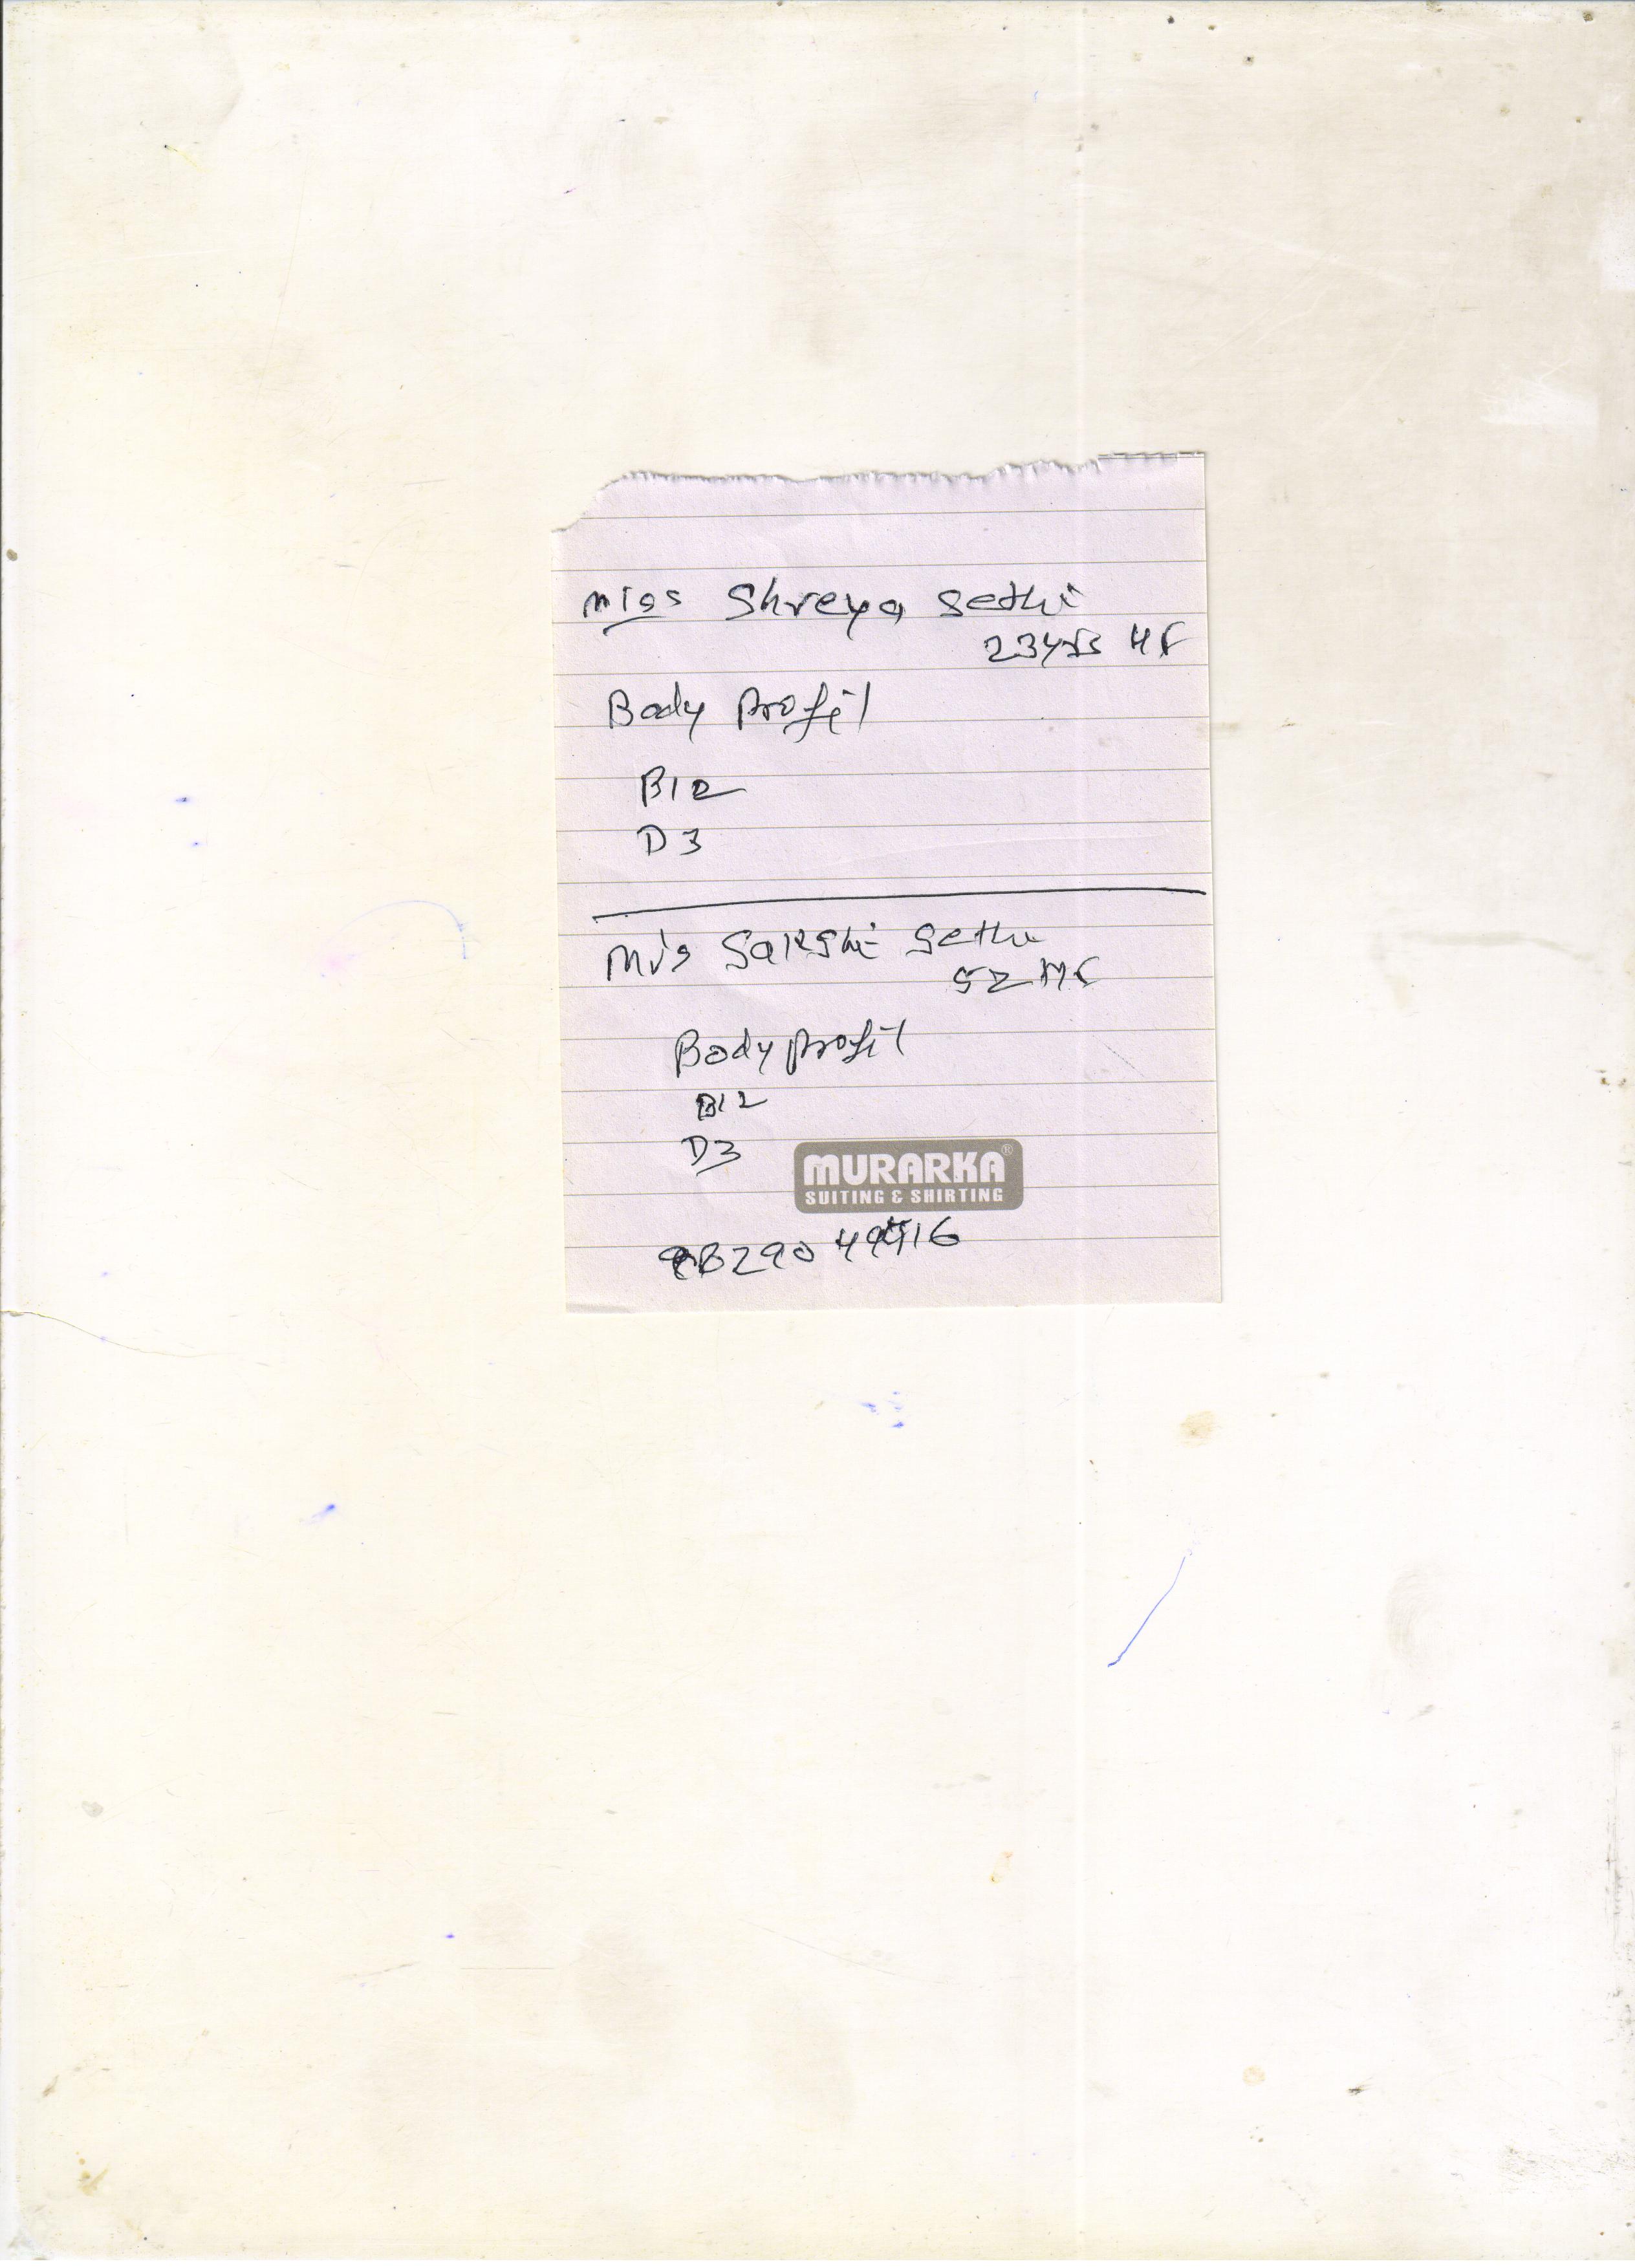 Miss Shreya Sethi
23yrs HF
Body Profil
B12
D3
Mrs Sakshi Sethi
52 HF
Body Profil
B12
D3
MURARKA®
SUITING & SHIRTING